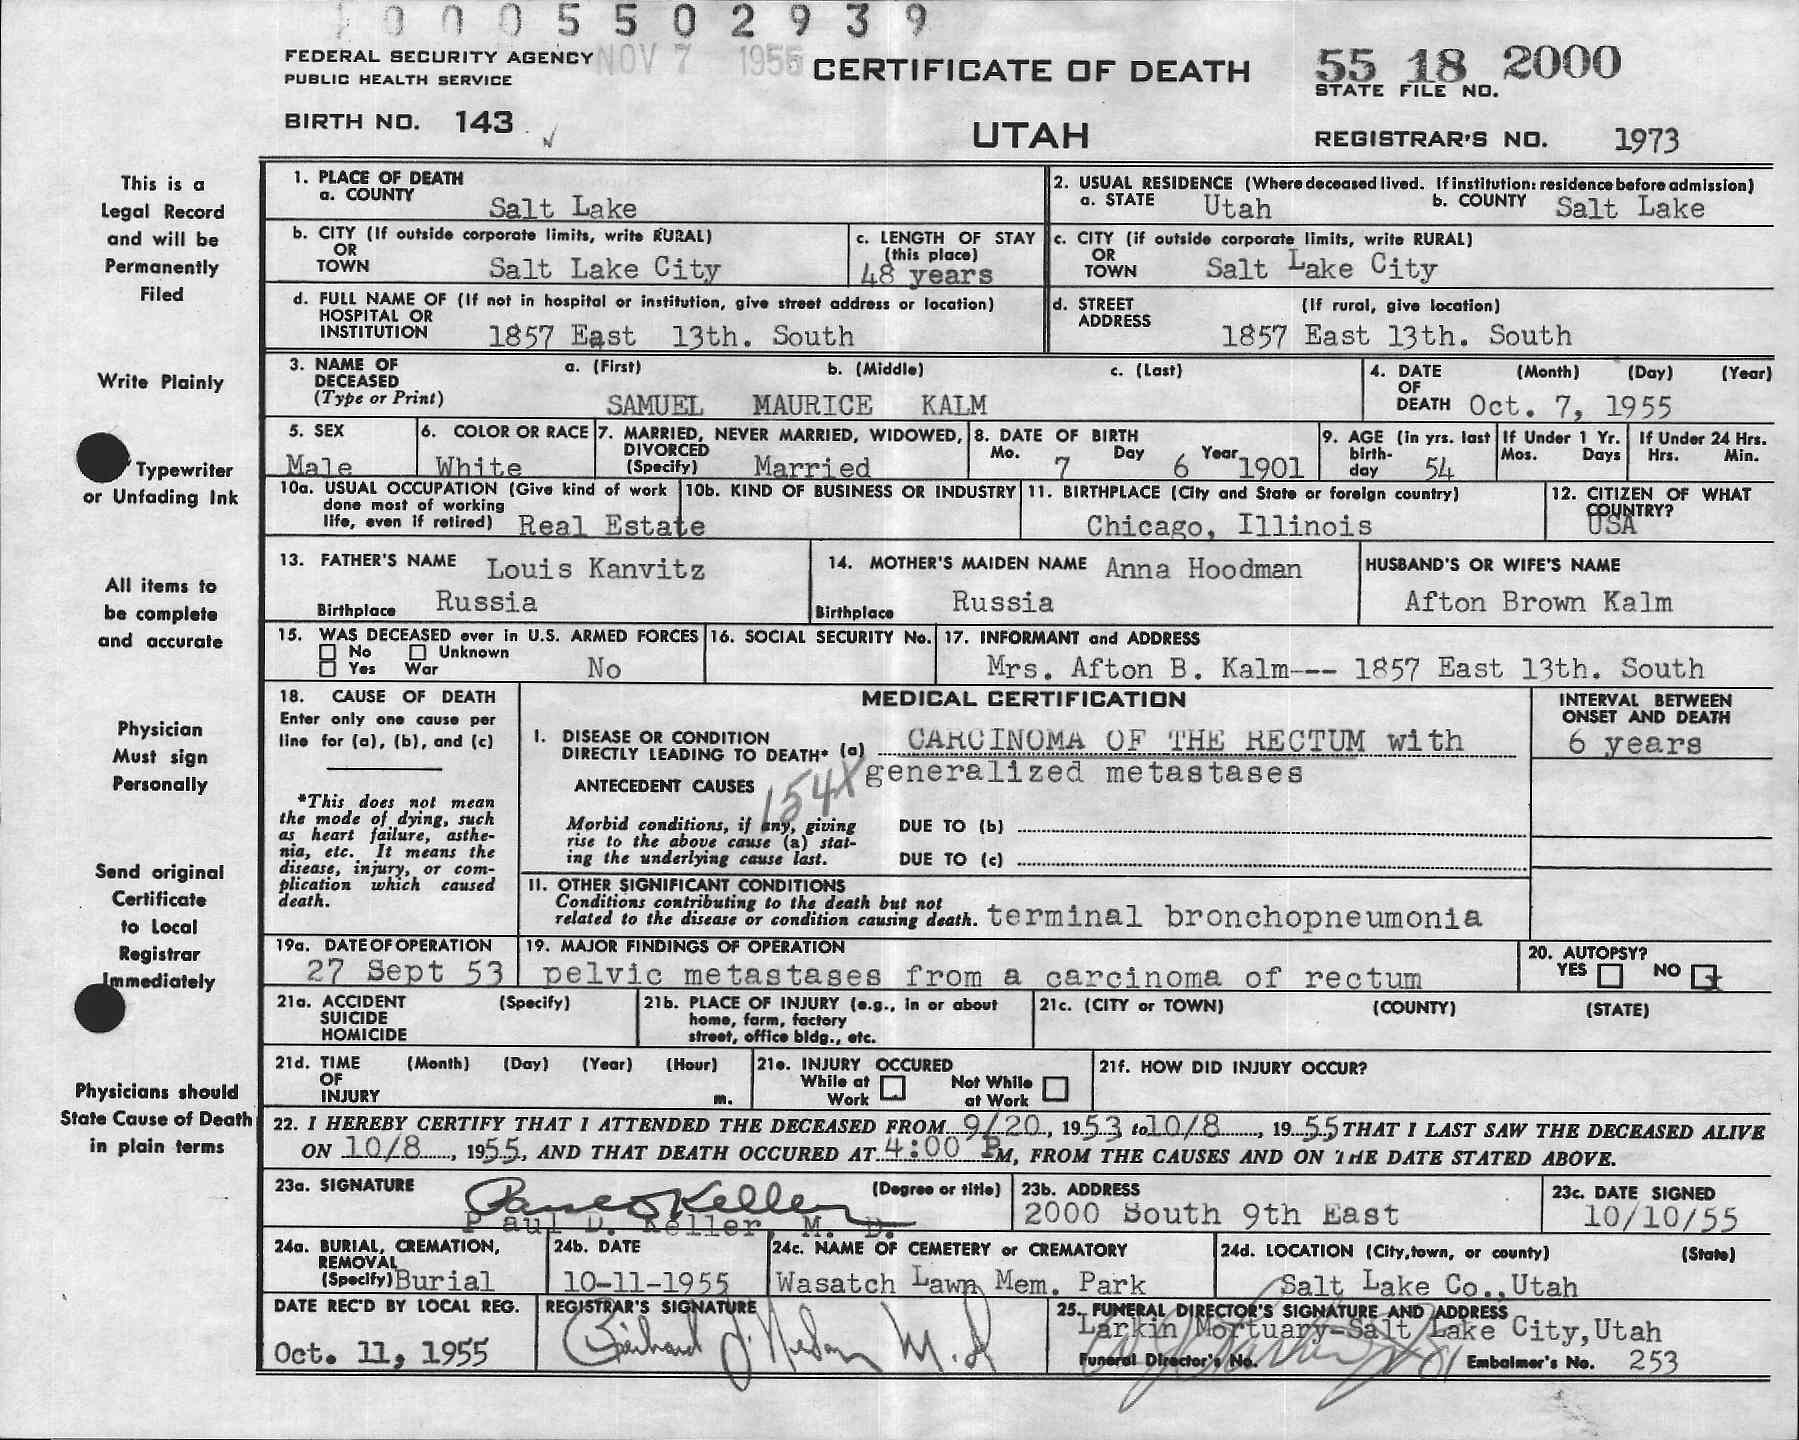 0005502939
FEDERAL SECURITY AGENCY NOV 7 1955 CERTIFICATE OF DEATH 55 18 2000
PUBLIC HEALTH SERVICE STATE FILE NO.
BIRTH NO. 143 UTAH REGISTRAR'S NO. 1973
This is a
Legal Record
and will be
Permanently
Filed
Write Plainly
Typewriter
or Unfading Ink
All items to
be complete
and accurate
Physician
Must sign
Personally
Send original
Certificate
to Local
Registrar
Immediately
Physicians should
State Cause of Death
in plain terms
1. PLACE OF DEATH
a. COUNTY Salt Lake
2. USUAL RESIDENCE (Where deceased lived. If institution: residence before admission)
a. STATE Utah b. COUNTY Salt Lake
b. CITY (If outside corporate limits, write RURAL)
OR
TOWN Salt Lake City
c. LENGTH OF STAY
(this place)
48 years
c. CITY (if outside corporate limits, write RURAL)
OR
TOWN Salt Lake City
d. FULL NAME OF (If not in hospital or institution, give street address or location)
HOSPITAL OR
INSTITUTION 1857 East 13th. South
d. STREET (If rural, give location)
ADDRESS 1857 East 13th. South
3. NAME OF a. (First) b. (Middle) c. (Last)
DECEASED
(Type or Print) SAMUEL MAURICE KALM
4. DATE (Month) (Day) (Year)
OF
DEATH Oct. 7, 1955
5. SEX
Male
6. COLOR OR RACE
White
7. MARRIED, NEVER MARRIED, WIDOWED,
DIVORCED
(Specify) Married
8. DATE OF BIRTH
Mo. 7 Day 6 Year 1901
9. AGE (in yrs. last
birth-
day 54
If Under 1 Yr.
Mos. Days
If Under 24 Hrs.
Hrs. Min.
10a. USUAL OCCUPATION (Give kind of work
done most of working
life, even if retired) Real Estate
10b. KIND OF BUSINESS OR INDUSTRY
11. BIRTHPLACE (City and State or foreign country)
Chicago, Illinois
12. CITIZEN OF WHAT
COUNTRY?
USA
13. FATHER'S NAME Louis Kanvitz
Birthplace Russia
14. MOTHER'S MAIDEN NAME Anna Hoodman
Birthplace Russia
HUSBAND'S OR WIFE'S NAME
Afton Brown Kalm
15. WAS DECEASED ever in U.S. ARMED FORCES
No Unknown
Yes War No
16. SOCIAL SECURITY No.
17. INFORMANT and ADDRESS
Mrs. Afton B. Kalm--- 1857 East 13th. South
18. CAUSE OF DEATH
Enter only one cause per
line for (a), (b), and (c)
*This does not mean
the mode of dying, such
as heart failure, asthe-
nia, etc. It means the
disease, injury, or com-
plication which caused
death.
MEDICAL CERTIFICATION
INTERVAL BETWEEN
ONSET AND DEATH
I. DISEASE OR CONDITION
DIRECTLY LEADING TO DEATH* (a) CARCINOMA OF THE RECTUM with 6 years
generalized metastases
ANTECEDENT CAUSES 154X
Morbid conditions, if any, giving
rise to the above cause (a) stat-
ing the underlying cause last.
DUE TO (b)
DUE TO (c)
II. OTHER SIGNIFICANT CONDITIONS
Conditions contributing to the death but not
related to the disease or condition causing death. terminal bronchopneumonia
19a. DATE OF OPERATION
27 Sept 53
19. MAJOR FINDINGS OF OPERATION
pelvic metastases from a carcinoma of rectum
20. AUTOPSY?
YES NO x
21a. ACCIDENT (Specify)
SUICIDE
HOMICIDE
21b. PLACE OF INJURY (e.g., in or about
home, farm, factory
street, office bldg., etc.
21c. (CITY or TOWN) (COUNTY) (STATE)
21d. TIME (Month) (Day) (Year) (Hour)
OF
INJURY m.
21e. INJURY OCCURED
While at Not While
Work at Work
21f. HOW DID INJURY OCCUR?
22. I HEREBY CERTIFY THAT I ATTENDED THE DECEASED FROM 9/20, 1953 to 10/8, 1955 THAT I LAST SAW THE DECEASED ALIVE
ON 10/8, 1955, AND THAT DEATH OCCURED AT 4:00 PM, FROM THE CAUSES AND ON THE DATE STATED ABOVE.
23a. SIGNATURE Paul D Keller (Degree or title)
Paul D. Keller, M. D.
23b. ADDRESS
2000 South 9th East
23c. DATE SIGNED
10/10/55
24a. BURIAL, CREMATION,
REMOVAL
(Specify) Burial
24b. DATE
10-11-1955
24c. NAME OF CEMETERY or CREMATORY
Wasatch Lawn Mem. Park
24d. LOCATION (City, town, or county) (State)
Salt Lake Co., Utah
DATE REC'D BY LOCAL REG.
Oct. 11, 1955
REGISTRAR'S SIGNATURE
Richard J. Nelson M.D
25. FUNERAL DIRECTOR'S SIGNATURE AND ADDRESS
Larkin Mortuary-Salt Lake City, Utah
Funeral Director's No. Embalmer's No. 253